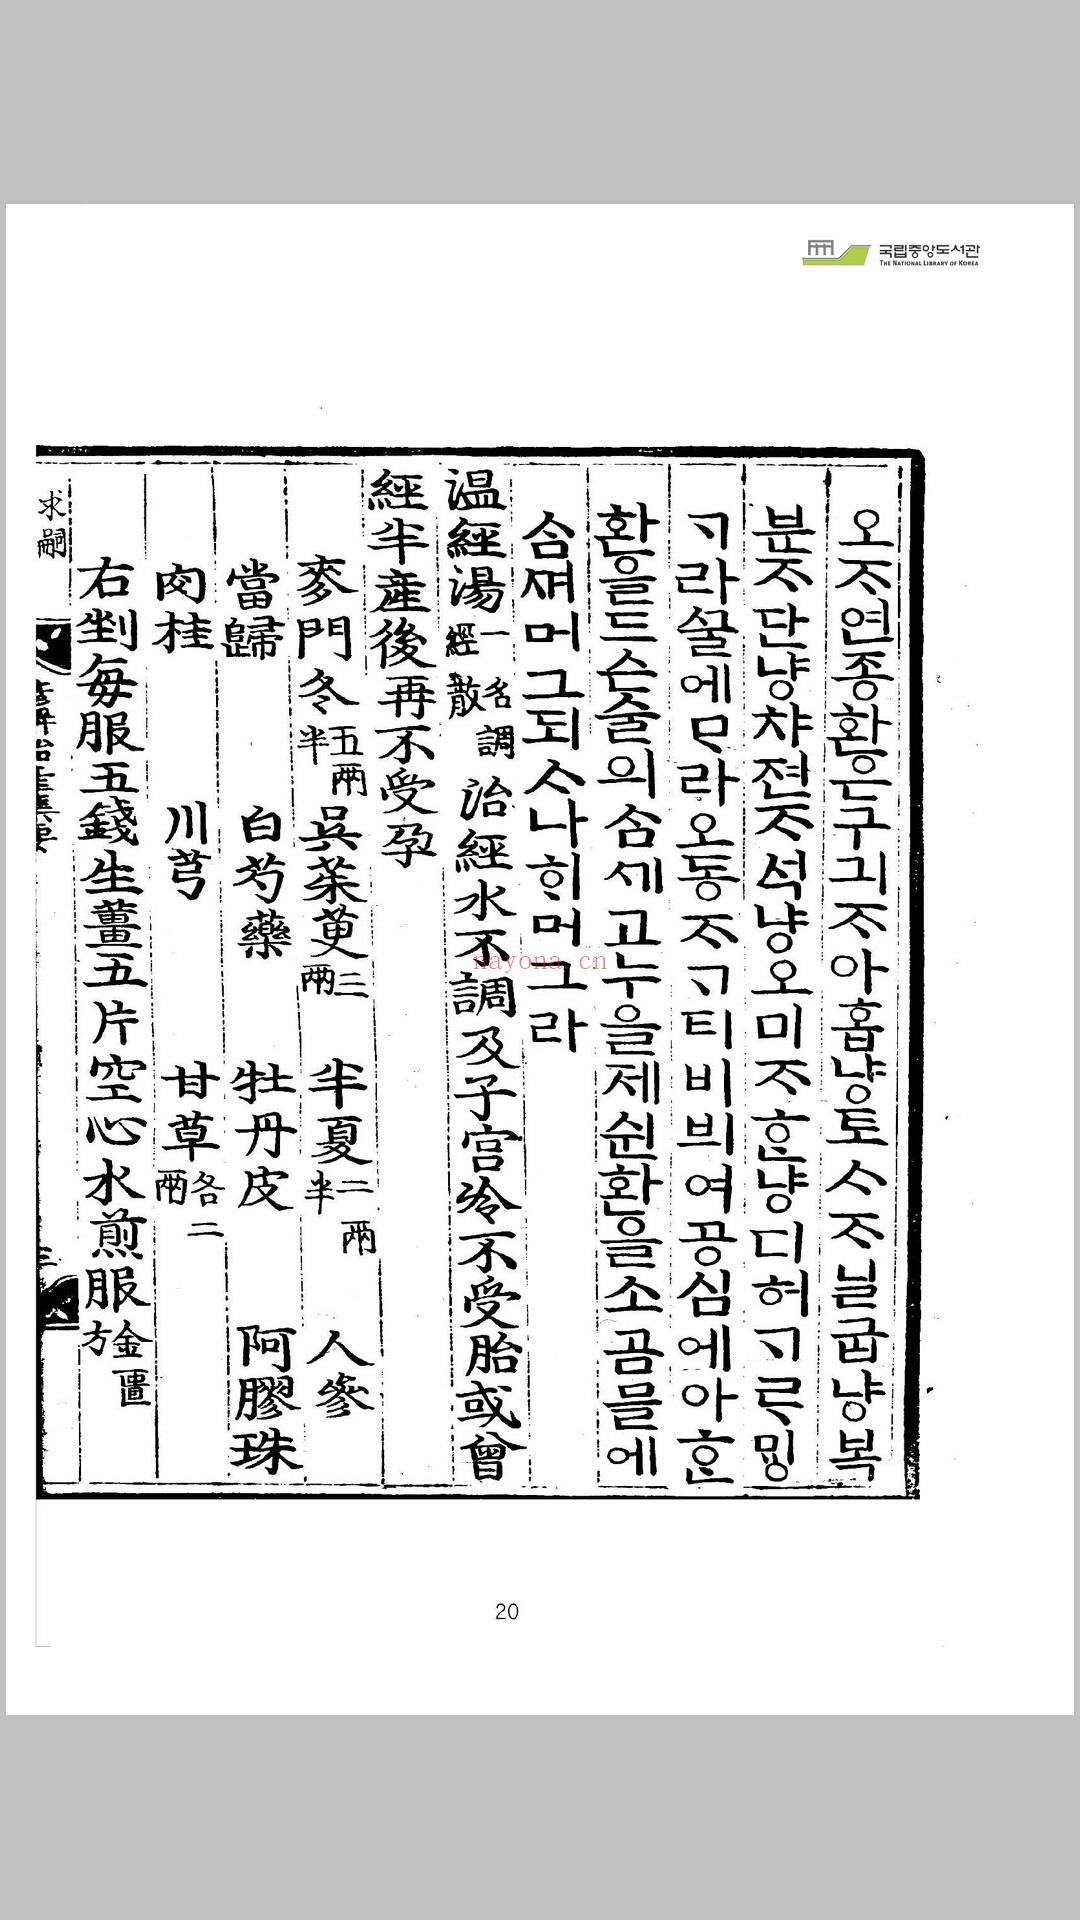 국립중앙도서관
THE NATIONAL LIBRARY OF KOREA
오ᄌᆞ연종환은구긔ᄌᆞ아홉냥토ᄉᆞᄌᆞ닐굽냥복
분ᄌᆞ단냥챠젼ᄌᆞ석냥오미ᄌᆞᄒᆞᆫ냥디허ᄀᆞᄅᆞᄆᆡᆼ
ᄀᆞ라ᄭᅮᆯ에ᄆᆞ라오동ᄌᆞᄀᆞ티비븨여공심에아ᄒᆞᆫ
환을드슨술의슴ᄭᅵ고누을제쉰환을소곰믈에
슴ᄭᅧ머그되ᄉᆞ나ᄒᆡ머그라
温經湯一名調經散治經水不調及子宮冷不受胎或曾
經半產後再不受孕
麥門冬五兩半 吳茱萸三兩 半夏二兩半 人參
當歸 白芍藥 牡丹皮 阿膠珠
肉桂 川芎 甘草各二兩
右剉每服五錢生薑五片空心水煎服金匱方
求嗣
nayona.cn
20